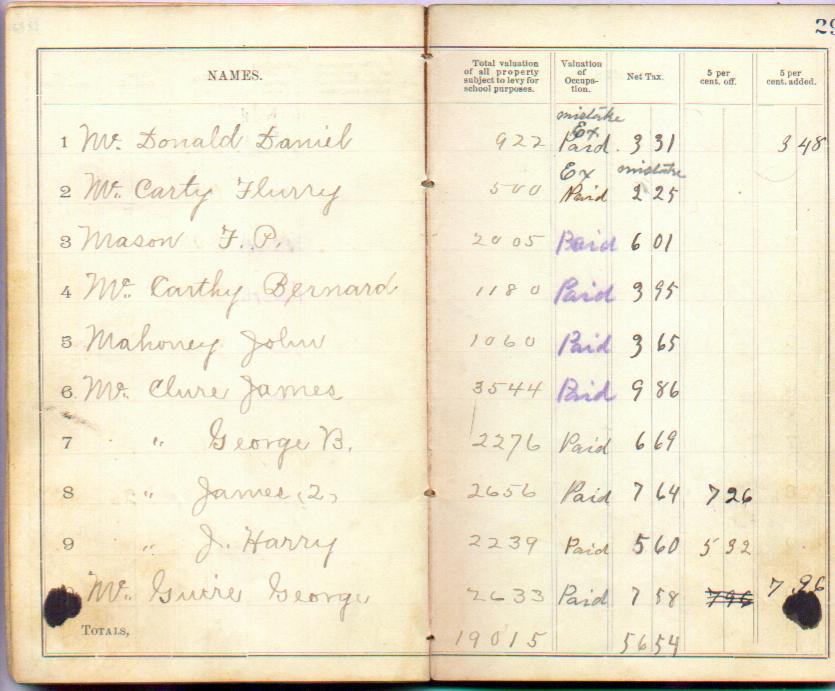 29
NAMES. Total valuation of all property subject to levy for school purposes. Valuation of Occupation. Net Tax. 5 per cent. off. 5 per cent. added.
mistake
Ex
1 Mc. Donald Daniel 922 Paid. 3 31 3 48
Ex mistake
2 Mc. Carty Flurry 500 Paid 2 25
3 Mason F. P. 2005 Paid 6 01
4 Mc. Carthy Bernard 1180 Paid 3 95
5 Mahoney John 1060 Paid 3 65
6 Mc. Clure James 3544 Paid 9 86
7 " George B. 2276 Paid 6 69
8 " James (2) 2656 Paid 7 64 7 26
9 " J. Harry 2239 Paid 5 60 5 32
Mc. Guire George 2633 Paid 7 58 796 7.96
TOTALS, 19015 5654